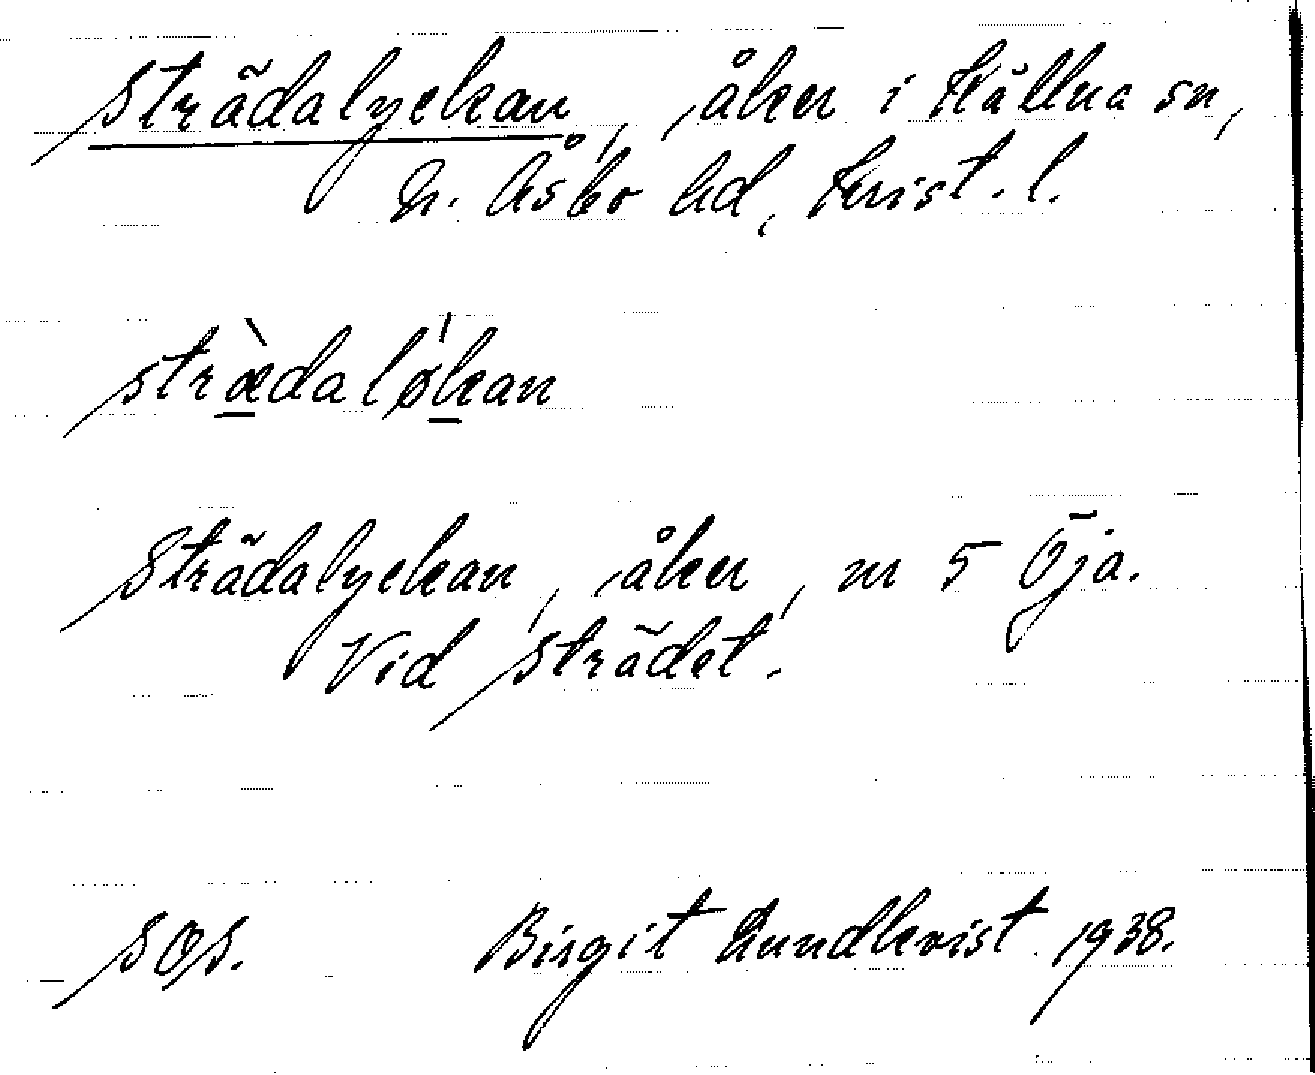 Strädalyckan, åker i Källna sn,
N. Åsbo hd, Krist. l.
stræ̀daløkan
Strädalyckan, åker, nr 5 Öja.
Vid Strädet.
SOS. Birgit Lundkvist 1938.